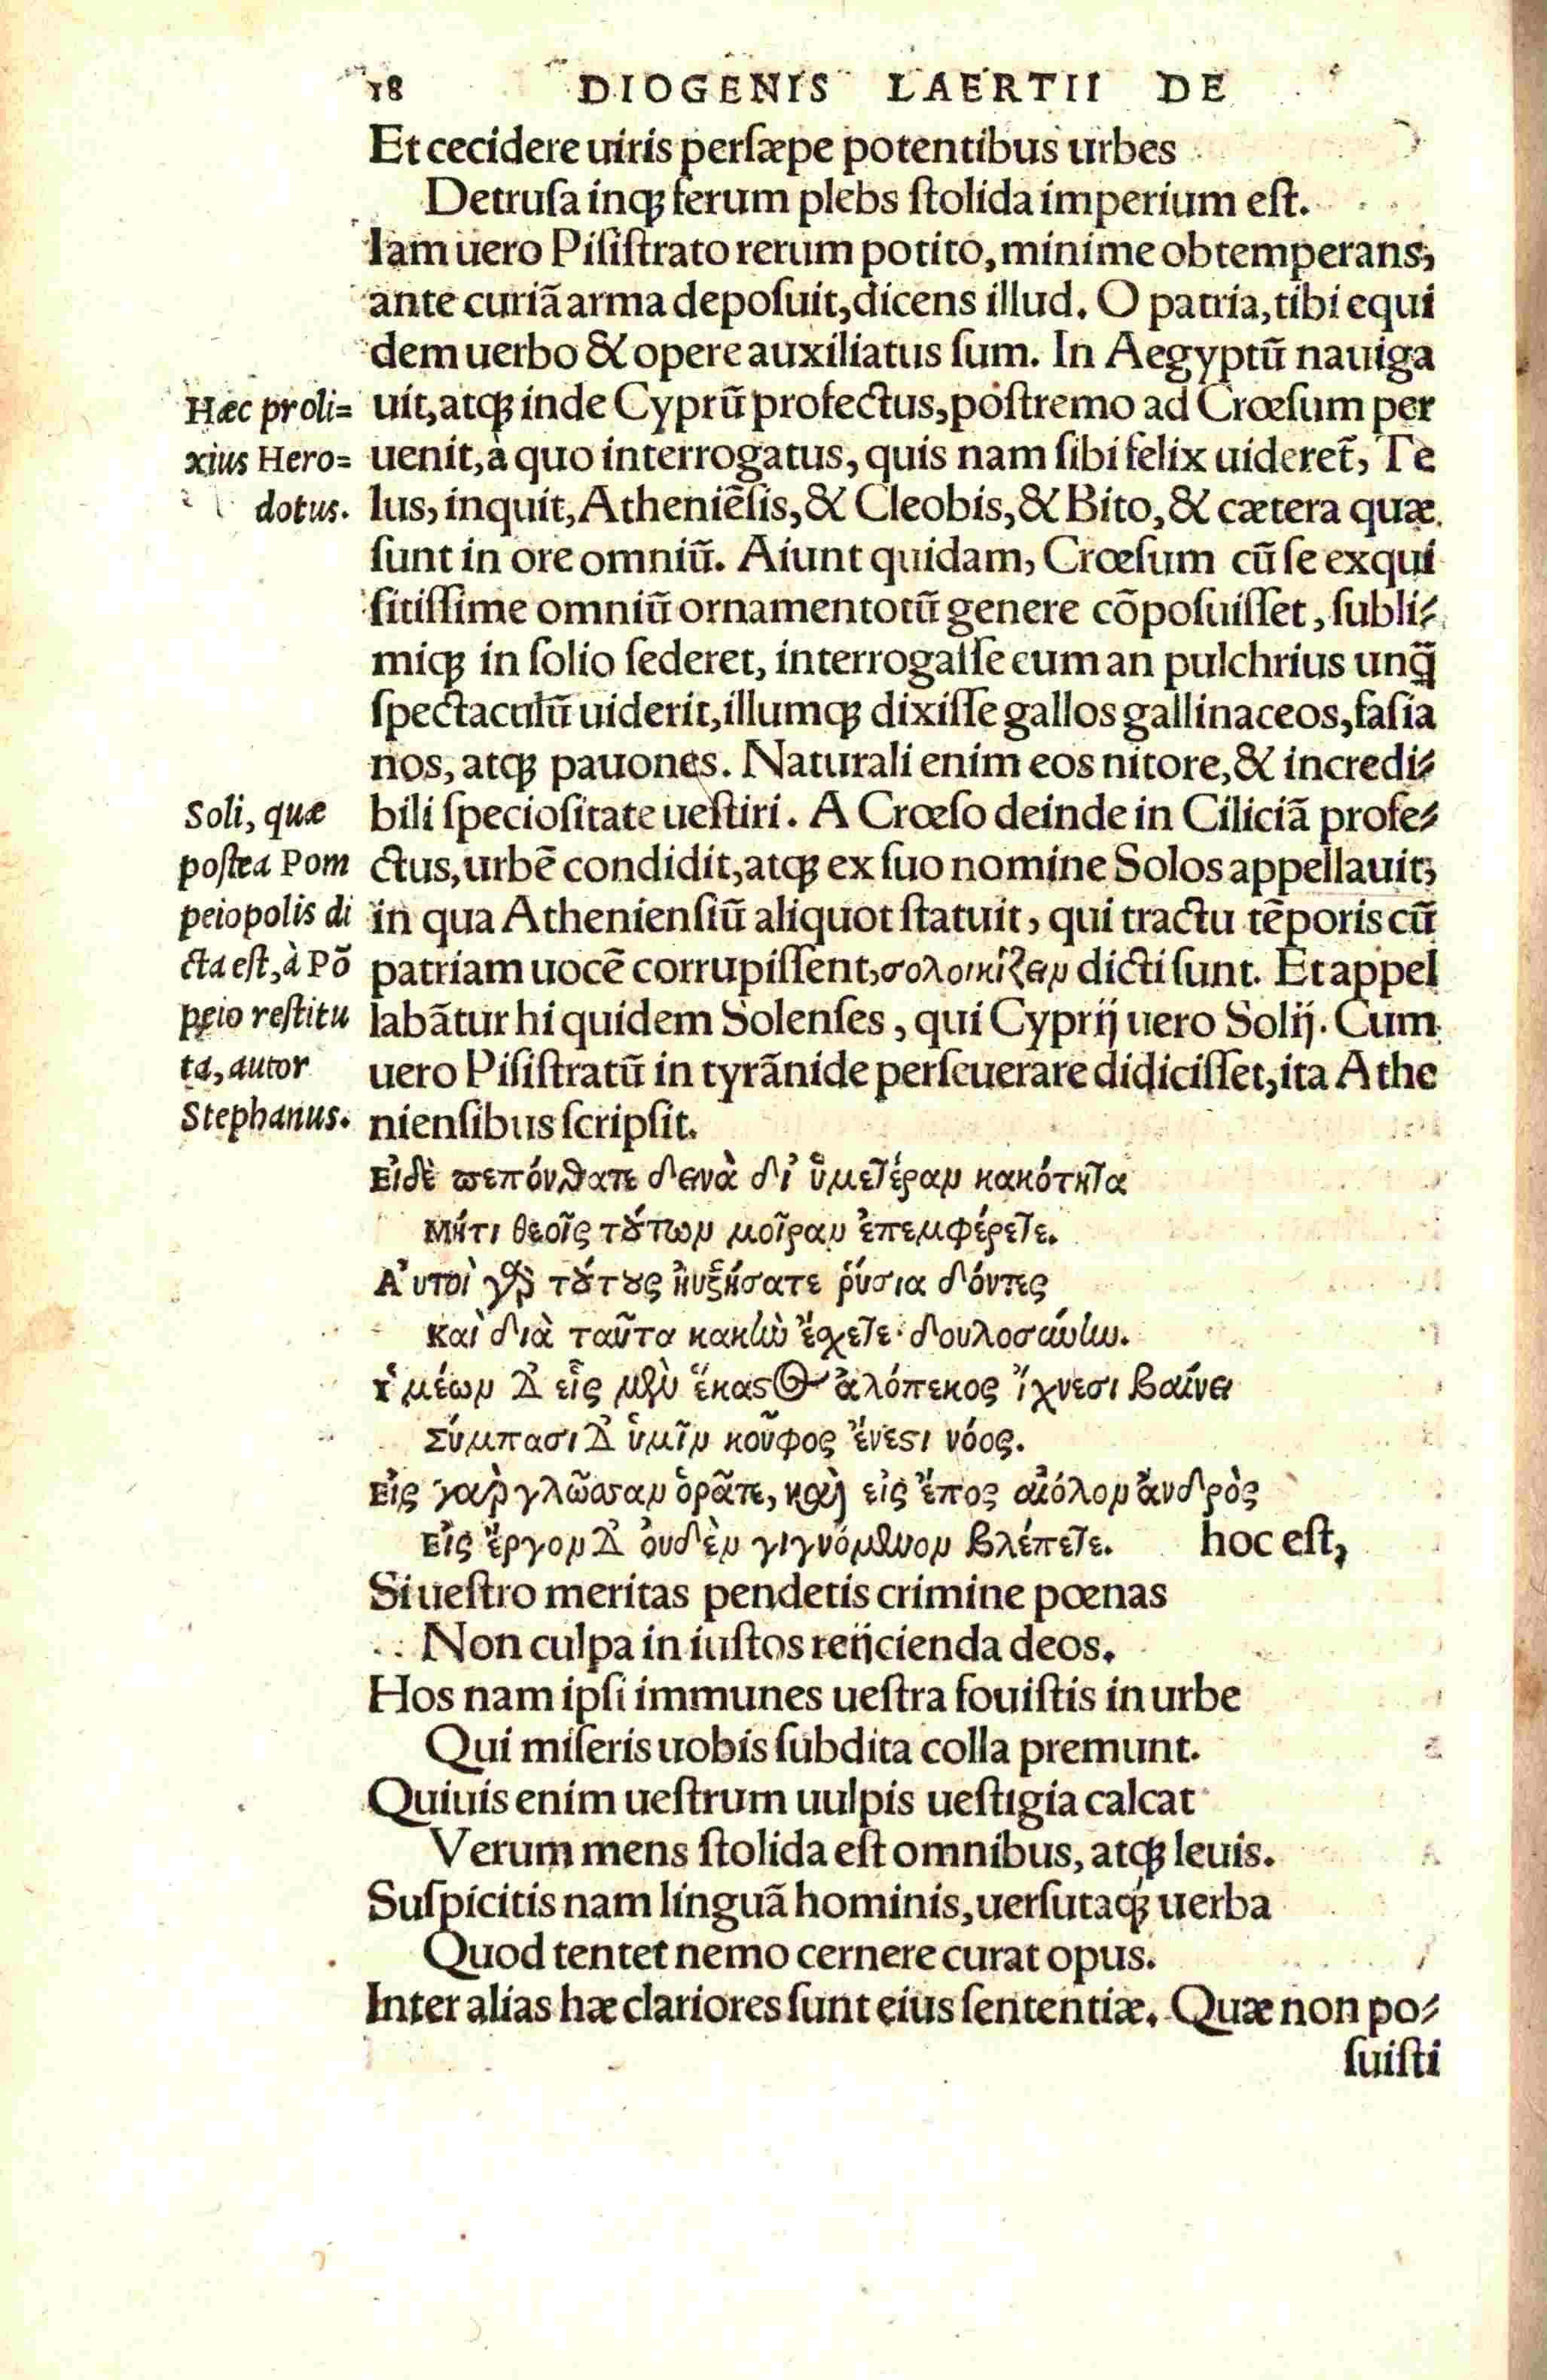 18 DIOGENIS LAERTII DE
Et cecidere uiris persæpe potentibus urbes
Detrusa inq; ferum plebs stolida imperium est.
Iam uero Pisistrato rerum potito, minime obtemperans,
ante curiã arma deposuit, dicens illud. O patria, tibi equi
dem uerbo & opere auxiliatus sum. In Aegyptũ nauiga
Hæc proli=
uit, atq; inde Cyprũ profectus, postremo ad Crœsum per
xius Hero=
uenit, à quo interrogatus, quis nam sibi felix uideret̃, Te
dotus.
lus, inquit, Atheniẽsis, & Cleobis, & Bito, & cætera quæ
sunt in ore omniũ. Aiunt quidam, Crœsum cũ se exqui
sitissime omniũ ornamentorũ genere cõposuisset, subli-
miq; in solio sederet, interrogasse eum an pulchrius unq̃
spectaculũ uiderit, illumq; dixisse gallos gallinaceos, fasia
nos, atq; pauones. Naturali enim eos nitore, & incredi-
Soli, quæ
bili speciositate uestiri. A Crœso deinde in Ciliciã profe-
postea Pom
ctus, urbẽ condidit, atq; ex suo nomine Solos appellauit,
peiopolis di
in qua Atheniensiũ aliquot statuit, qui tractu tẽporis cũ
cta est, à Põ
patriam uocẽ corrupissent, σολοικίζειν dicti sunt. Et appel
peio restitu
labãtur hi quidem Solenses, qui Cyprij uero Solij. Cum
ta, autor
uero Pisistratũ in tyrãnide perseuerare didicisset, ita Athe
Stephanus.
niensibus scripsit.
Εἰ δὲ πεπόνθατε δεινὰ δι' ὑμετέραν κακότητα
Μήτι θεοῖς τούτων μοῖραν ἐπεμφέρετε.
Αὐτοὶ γὰρ τούτους ηὐξήσατε ῥύσια δόντες
Καὶ διὰ ταῦτα κακὴν ἔχετε δουλοσύνην.
Ὑμέων δ' εἷς μὲν ἕκαστος ἀλόπεκος ἴχνεσι βαίνει
Σύμπασι δ' ὑμῖν κοῦφος ἔνεστι νόος.
Εἰς γὰρ γλῶσσαν ὁρᾶτε, καὶ εἰς ἔπος αἰόλον ἀνδρὸς
Εἰς ἔργον δ' οὐδὲν γιγνόμενον βλέπετε. hoc est,
Si uestro meritas pendetis crimine pœnas
Non culpa in iustos reijcienda deos.
Hos nam ipsi immunes uestra fouistis in urbe
Qui miseris uobis subdita colla premunt.
Quiuis enim uestrum uulpis uestigia calcat
Verum mens stolida est omnibus, atq; leuis.
Suspicitis nam linguã hominis, uersutaq; uerba
Quod tentet nemo cernere curat opus.
Inter alias hæ clariores sunt eius sententiæ. Quæ non po-
suisti